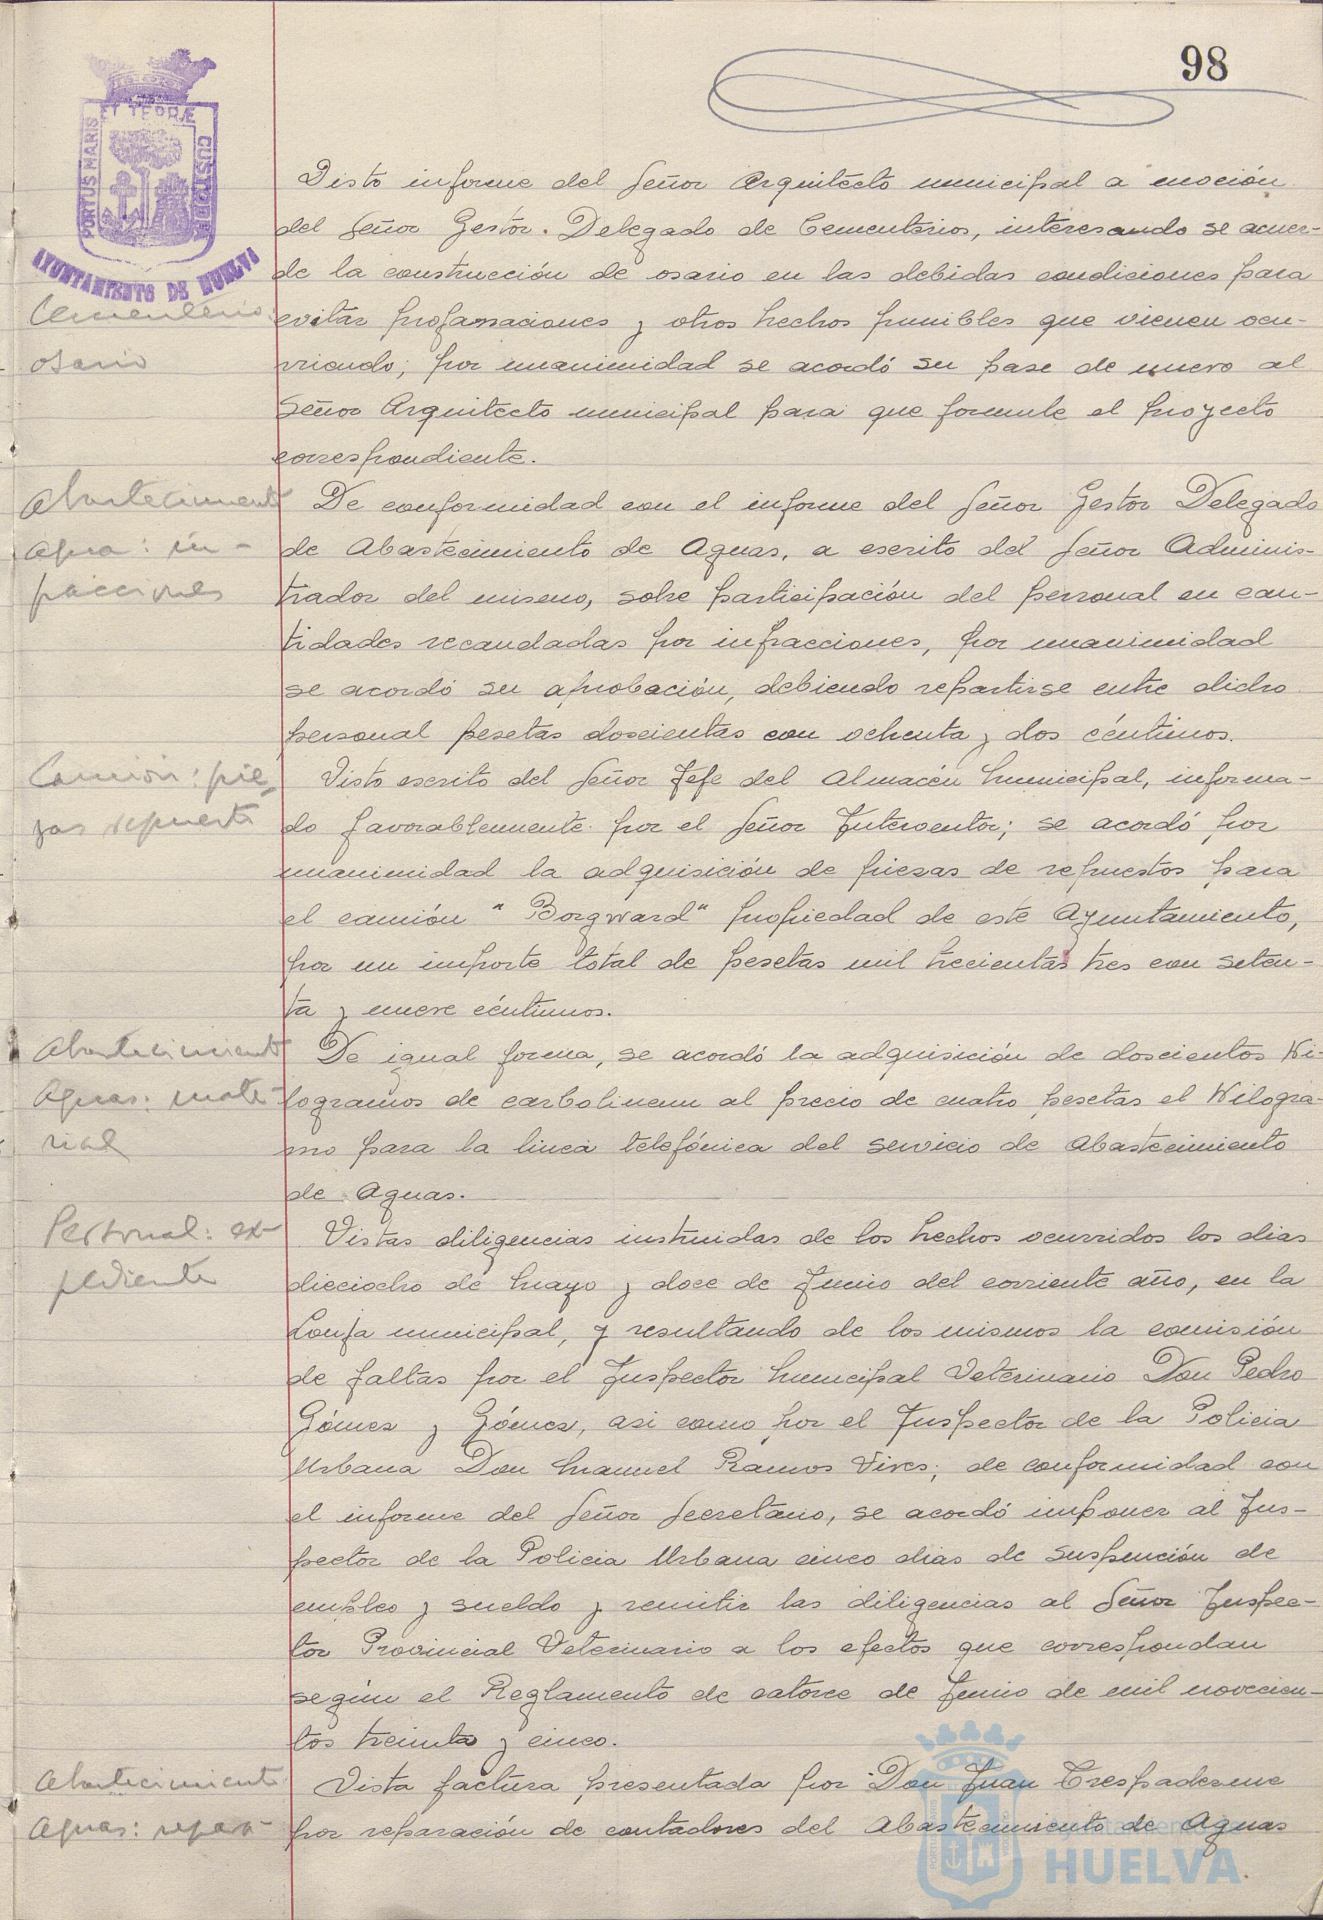 98
PORTUS MARIS ET TERRÆ CUSTODIA
AYUNTAMIENTO DE HUELVA
Visto informe del Señor Arquitecto municipal a moción
del Señor Gestor. Delegado de Cementerios, interesando se acuer-
de la construcción de osario en las debidas condiciones para
Cementerio:
evitar profanaciones y otros hechos punibles que vienen ocu-
osario
rriendo; por unanimidad se acordó su pase de nuevo al
Señor Arquitecto municipal para que formule el proyecto
correspondiente.
Abastecimiento
De conformidad con el informe del Señor Gestor Delegado
agua: in-
de Abastecimiento de Aguas, a escrito del Señor Adminis-
fracciones
trador del mismo, sobre participación del personal en can-
tidades recaudadas por infracciones, por unanimidad
se acordó su aprobación, debiendo repartirse entre dicho
personal pesetas doscientas con ochenta y dos céntimos.
Camión: pie-
Visto escrito del Señor Jefe del Almacén Municipal, informa-
zas repuesto
do favorablemente por el Señor Interventor; se acordó por
unanimidad la adquisición de piezas de repuestos para
el camión "Borgward" propiedad de este Ayuntamiento,
por un importe total de pesetas mil trecientas tres con seten-
ta y nueve céntimos.
Abastecimiento
De igual forma, se acordó la adquisición de doscientos Ki-
Aguas: mate-
logramos de carbolineum al precio de cuatro pesetas el Kilogra-
rial
mo para la linea telefónica del servicio de Abastecimiento
de Aguas.
Personal: ex-
Vistas diligencias instruidas de los hechos ocurridos los dias
pediente
dieciocho de Mayo y doce de Junio del corriente año, en la
Lonja municipal, y resultando de los mismos la comisión
de faltas por el Inspector Municipal Veterinario Don Pedro
Gómez y Gómez, asi como por el Inspector de la Policia
Urbana Don Manuel Ramos Vives; de conformidad con
el informe del Señor Secretario, se acordó imponer al Ins-
pector de la Policia Urbana cinco dias de suspención de
empleo y sueldo y remitir las diligencias al Señor Inspec-
tor Provincial Veterinario a los efectos que correspondan
según el Reglamento de catorce de Junio de mil novecien-
tos treinta y cinco.
Abastecimiento
Vista factura presentada por Don Juan Trespaderne
Aguas: repara-
por reparación de contadores del Abastecimiento de Aguas
Ayuntamiento de
HUELVA